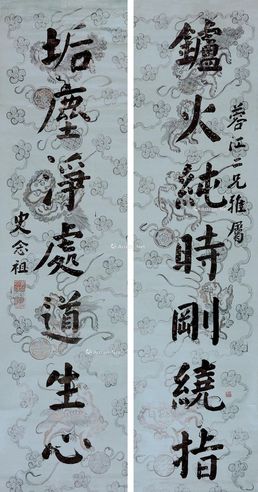 鑪火純時剛繞指
蓉江二兄雅屬
垢塵淨處道生心
史念祖